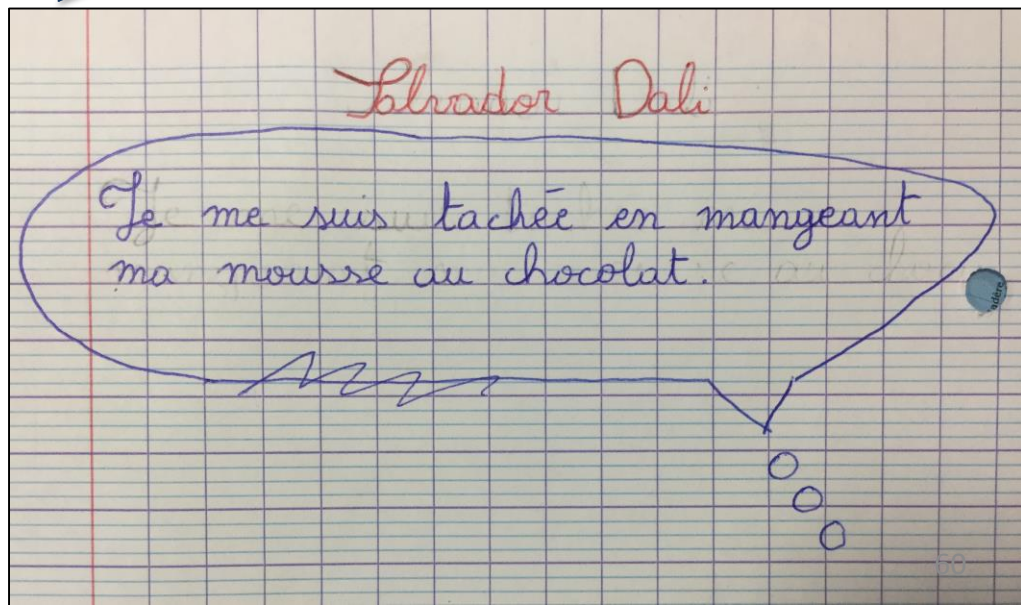 Salvador Dali
Je me suis tachée en mangeant
ma mousse au chocolat.
adère
60